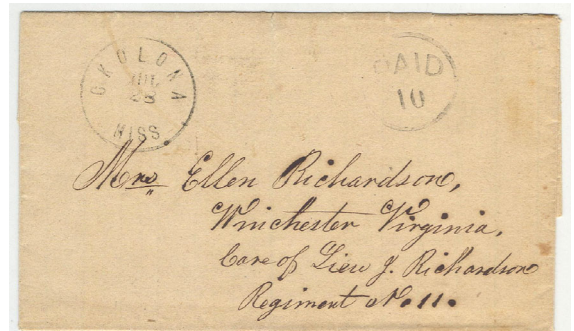 OKOLONA
JUL
25
MISS.
PAID
10
Mrs Ellen Richardson,
Winchester Virginia,
Care of Lieu J. Richardson
Regiment No. 11.